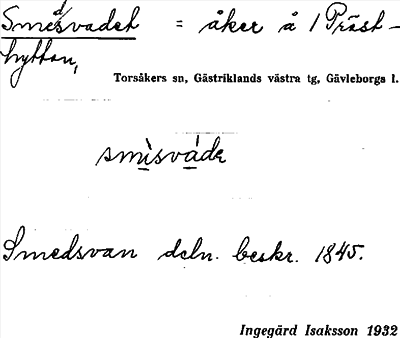 Smedsvadet = åker å 1 Präst-
hyttan,
Torsåkers sn, Gästriklands västra tg, Gävleborgs l.
smìsvá̀de
Smedsvan deln. beskr. 1845.
Ingegärd Isaksson 1932